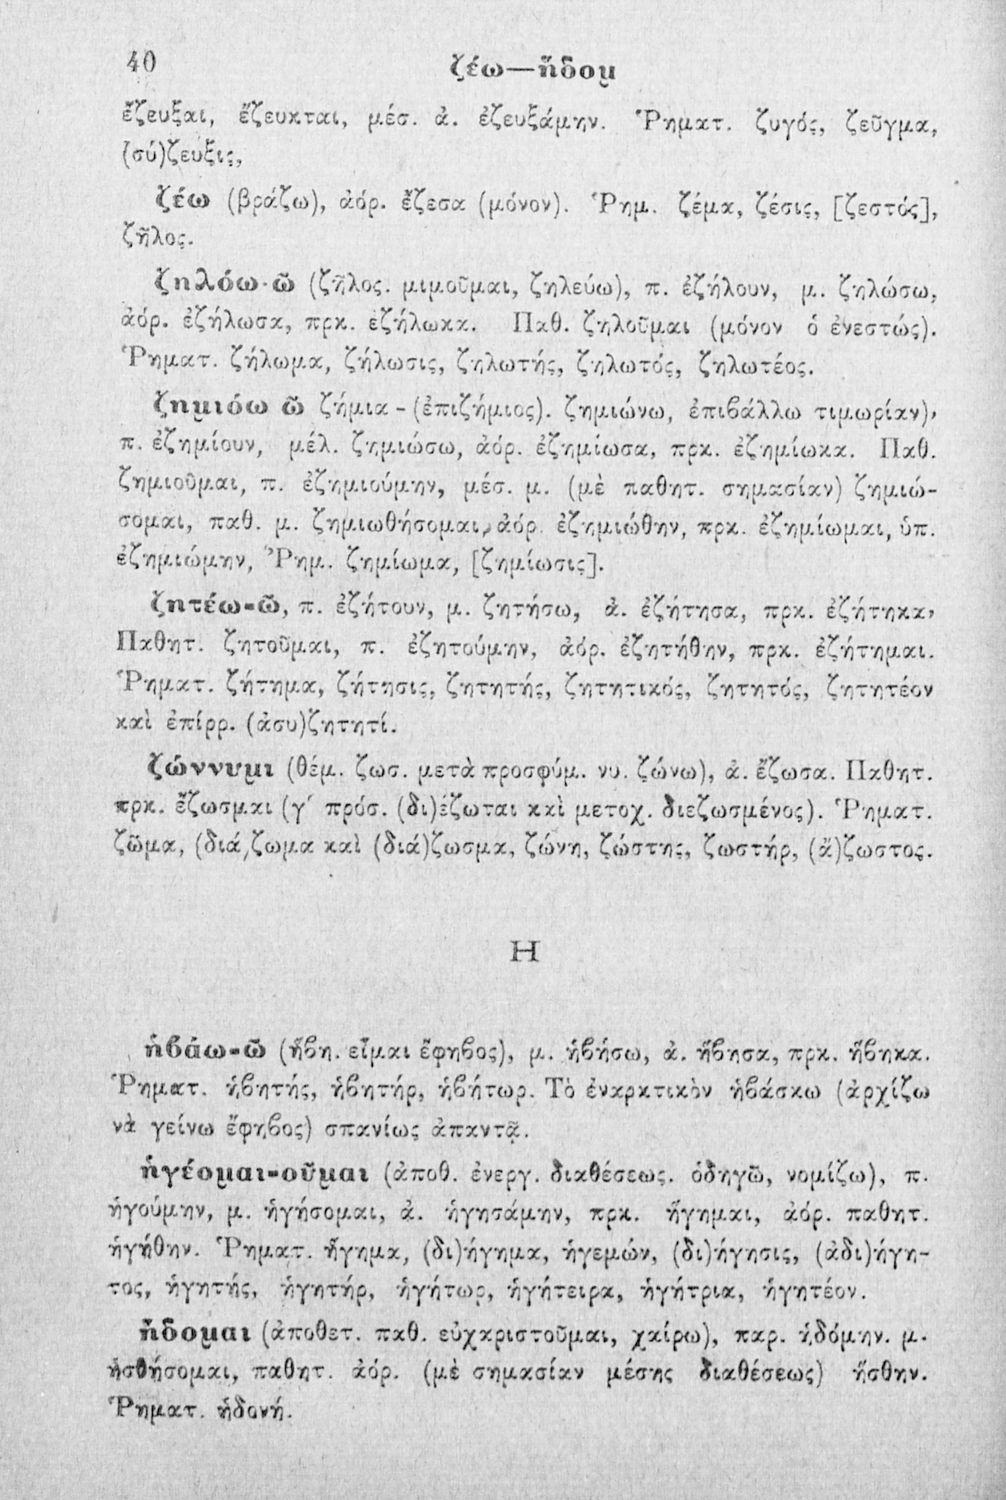 40
ζέω—ἥδομ
ἔζευξαι, ἔζευκται, μέσ. ἀ. ἐζευξάμην. Ῥηματ. ζυγός, ζεῦγμα,
(σύ)ζευξις,
ζέω (βράζω), ἀόρ. ἔζεσα (μόνον). Ῥημ. ζέμα, ζέσις, [ζεστός],
ζῆλος.
ζηλόω-ῶ (ζῆλος. μιμοῦμαι, ζηλεύω), π. ἐζήλουν, μ. ζηλώσω,
ἀόρ. ἐζήλωσα, πρκ. ἐζήλωκα. Παθ. ζηλοῦμαι (μόνον ὁ ἐνεστώς).
Ῥηματ. ζήλωμα, ζήλωσις, ζηλωτής, ζηλωτός, ζηλωτέος.
ζημιόω ῶ ζήμια - (ἐπιζήμιος). ζημιώνω, ἐπιβάλλω τιμωρίαν),
π. ἐζημίουν, μέλ. ζημιώσω, ἀόρ. ἐζημίωσα, πρκ. ἐζημίωκα. Παθ.
ζημιοῦμαι, π. ἐζημιούμην, μέσ. μ. (μὲ παθητ. σημασίαν) ζημιώ-
σομαι, παθ. μ. ζημιωθήσομαι, ἀόρ. ἐζημιώθην, πρκ. ἐζημίωμαι, ὑπ.
ἐζημιώμην, Ῥημ. ζημίωμα, [ζημίωσις].
ζητέω-ῶ, π. ἐζήτουν, μ. ζητήσω, ἀ. ἐζήτησα, πρκ. ἐζήτηκα,
Παθητ. ζητοῦμαι, π. ἐζητούμην, ἀόρ. ἐζητήθην, πρκ. ἐζήτημαι.
Ῥηματ. ζήτημα, ζήτησις, ζητητής, ζητητικός, ζητητός, ζητητέον
καὶ ἐπίρρ. (ἀσυ)ζητητί.
ζώννυμι (θέμ. ζωσ. μετὰ προσφύμ. νυ. ζώνω), ἀ. ἔζωσα. Παθητ.
πρκ. ἔζωσμαι (γ΄ πρόσ. (δι)έζωται καὶ μετοχ. διεζωσμένος). Ῥηματ.
ζῶμα, (διά)ζωμα καὶ (διά)ζωσμα, ζώνη, ζώστης, ζωστήρ, (ἄ)ζωστος.
Η
ἡβάω-ῶ (ἥβη. εἶμαι ἔφηβος), μ. ἡβήσω, ἀ. ἥβησα, πρκ. ἥβηκα.
Ῥηματ. ἡβητής, ἡβητήρ, ἡβήτωρ. Τὸ ἐναρκτικὸν ἡβάσκω (ἀρχίζω
νὰ γείνω ἔφηβος) σπανίως ἀπαντᾷ.
ἡγέομαι-οῦμαι (ἀποθ. ἐνεργ. διαθέσεως. ὁδηγῶ, νομίζω), π.
ἡγούμην, μ. ἡγήσομαι, ἀ. ἡγησάμην, πρκ. ἥγημαι, ἀόρ. παθητ.
ἡγήθην. Ῥηματ. ἥγημα, (δι)ήγημα, ἡγεμών, (δι)ήγησις, (ἀδι)ήγη-
τος, ἡγητής, ἡγητήρ, ἡγήτωρ, ἡγήτειρα, ἡγήτρια, ἡγητέον.
ἥδομαι (ἀποθετ. παθ. εὐχαριστοῦμαι, χαίρω), παρ. ἡδόμην. μ.
ἡσθήσομαι, παθητ. ἀόρ. (μὲ σημασίαν μέσης διαθέσεως) ἥσθην.
Ῥηματ. ἡδονή.